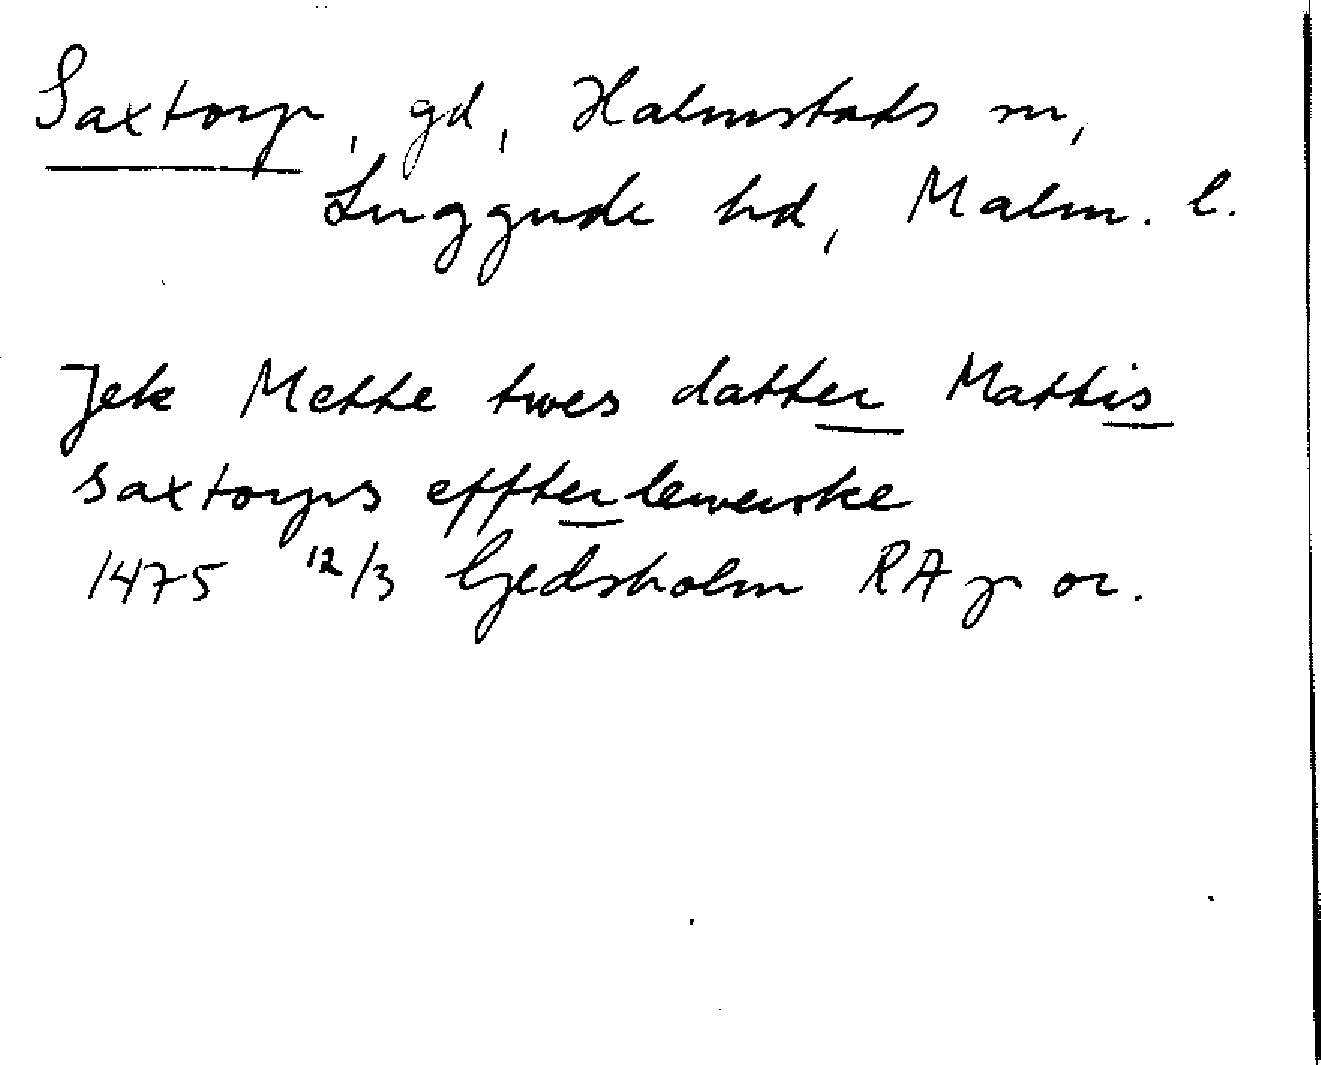 Saxtorp, gd, Halmstads sn,
Luggude hd, Malm. l.
Jek Mette twes datter Mattis
saxtorps effterleuerske
1475 12/3 Gedsholm RAp or.